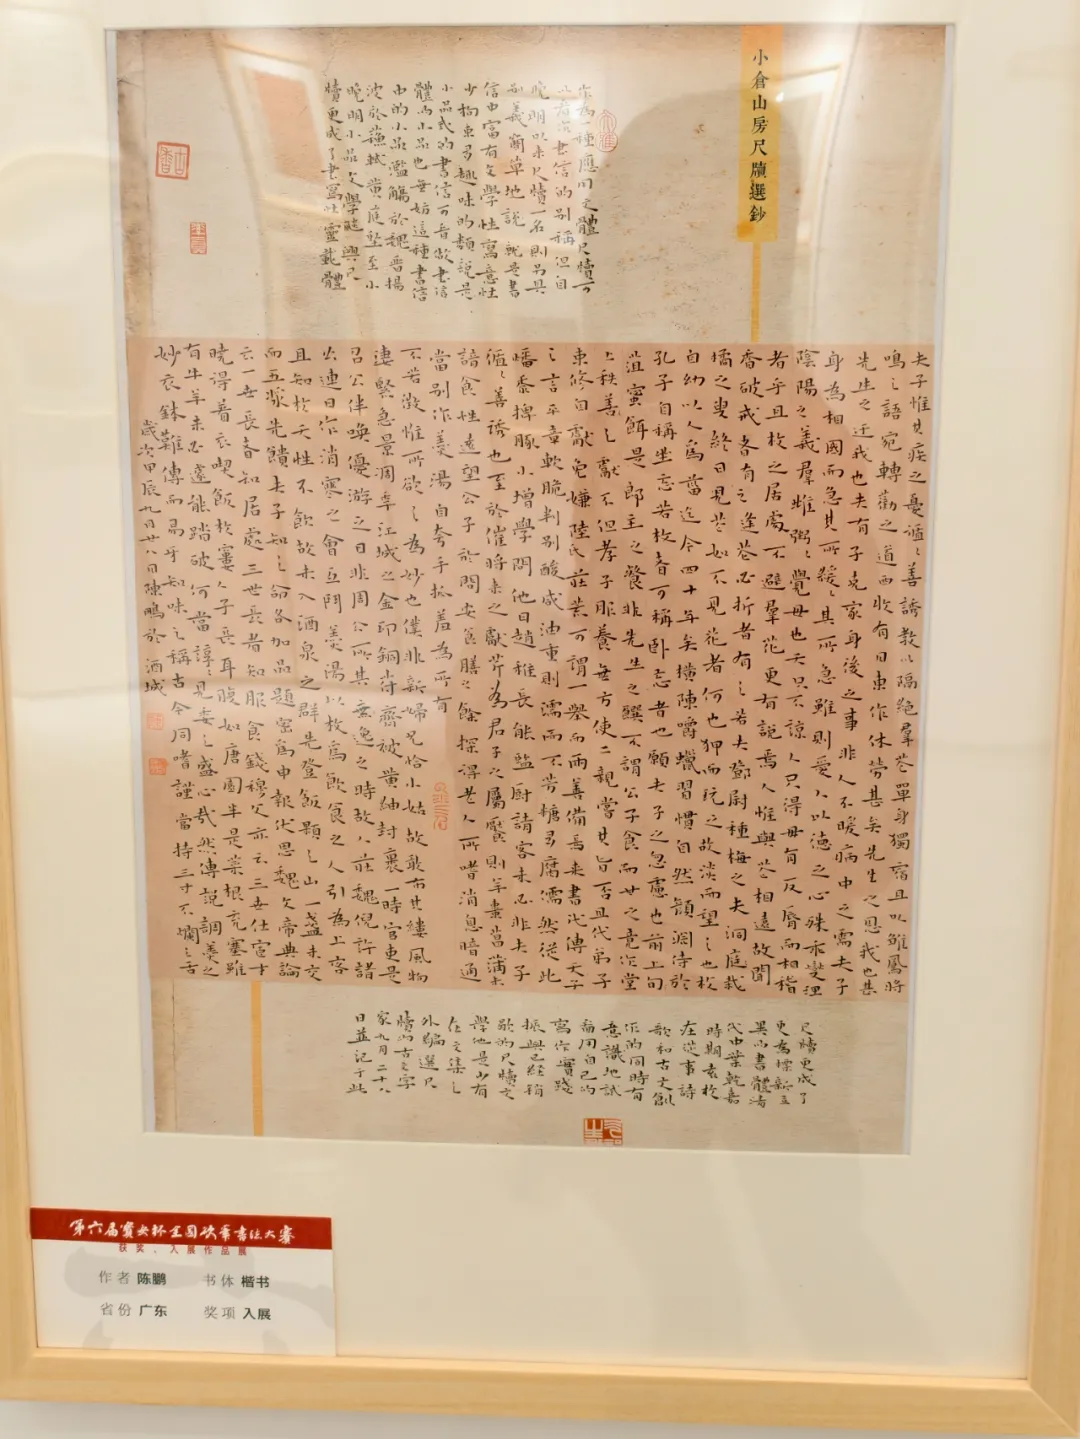 小倉山房尺牘選鈔
作為一種應用文體尺牘可
以看作書信的别稱但自
晚明以来尺牘一名則另具
别義簡單地説就是書
信中富有文學性寓意性
少拘束多趣味的類説是
小品式的書信可看做書信
體的小品也無妨這種書信
中的小品濫觴於魏晋揚
波於蘇軾黄庭堅至小
晚明小品文學隨興尺
牘更成了書寫性靈載體
夫子惟其疾之憂循〻善誘教以隔絶羣花單身獨宿且以雏鳳將
鳴之語宛轉勸之道西收有日東作休勞甚矣先生之思我也甚
先生之迂我也夫有子克家身後之事非人不暖病中之需夫子
身為相國而急其所緩〻其所急雖則愛人以德之心殊乖燮理
陰陽之義羣雌粥〻覺毋也天只不諒人只得毋有反脣而相稽
者乎且枚之居處不避羣花更有説焉人惟與花相遠故聞
香破戒者有之逢花必折者有之若夫鄧尉種梅之夫洞庭栽
橘之叟終日見花如不見花者何也狎而玩之故淡而望之也枚
自幼以人為菑迄今四十年矣横陳嚼蠟習慣自然顏淵侍於
孔子自稱坐忘若枚者可稱卧忘者也願夫子之忽慮也前上旬
蒩蜜餌是郎主之餐非先生之饌不謂公子食而甘之竟作堂
上秩膳之獻不但孝子服養無方使二親嘗其旨否且代弟子
束修自獻免嫌陸氏莊荒可謂一舉而兩善備焉来書代傳天子
之言平章軟脆判别酸咸油重則濡而不芳糖多腐儒然從此
燔黍捭豚小增學問他日趙稚長能監厨請客未必非夫子
循〻善誘也至於催將来之獻芹為君子之屬饜則羊棗菖蒲未
諳食性遠望公子於問安食膳之餘探得老人所嗜消息暗通
當别作羹湯自夸手抓羞為所有
不若澂惟所欲之為妙也僕非新婦兄恰小姑故敢布其縷風物
凄緊急景凋年江城之金印銅符齊被黄紬封裹一時官吏是
召公伴唤優游之日非周公所其無逸之時故人莊魏倪許諸
公連日作消寒之會互鬥羹湯以枚為飲食之人引為上客
且知枚天性不飲故未入酒泉之群先登飯顆之山一盞未交
而五漿先饋夫子知之命各加品題密為申報伏思魏文帝典論
云一世長者知居處三世長者知服食錢穆父亦云三世仕宦才
曉得着衣喫飯枚窶人子長耳腹如唐園半是菜根充塞雖
有牛羊未必遽能踏破何當諄〻見委之盛心哉然傳説調羹之
妙衣鉢難傳而易牙知味之稱古今同嗜謹當持三寸不爛之舌
歲次甲辰九日廿八日陳鵬於酒城
尺牘更成了
更為標新立
異的書體清
代中葉乾嘉
時期袁枚
在從事詩
歌和古文創
作的同時有
意識地試
着用自己的
寫作實踐
振興已經衰
歇的尺牘文
學他是少有
在文集之
外編選尺
牘的古文字
家九月二十八
日並記于此
第六届寶安杯全国硬筆書法大賽
获奖、入展作品展
作者 陈鹏 书体 楷书
省份 广东 奖项 入展